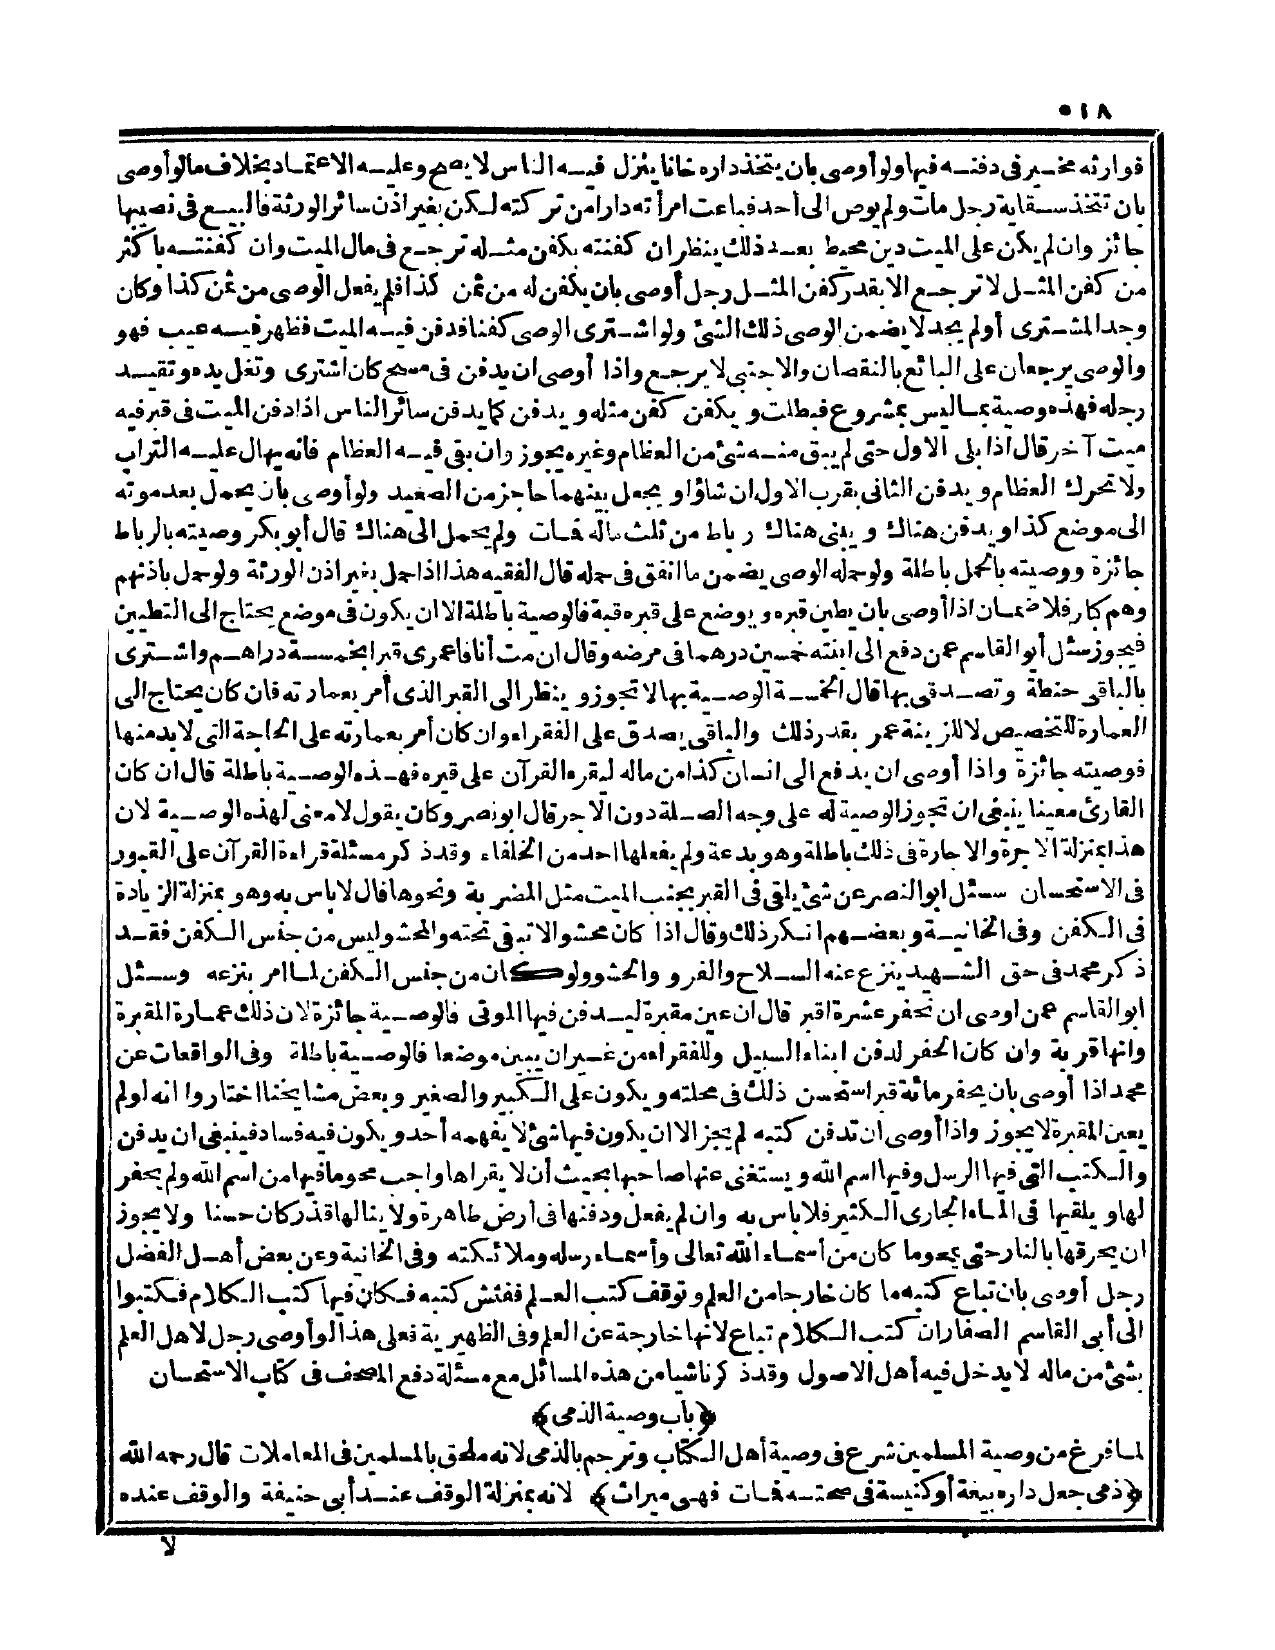 ٥١٨
فوارثه مخير فى دفنه فيها ولو أوصى بان يتخذ داره خانا ينزل فيه الناس لا يصح وعليه الاعتماد بخلاف مالو أوصى
بان تتخذ سقاية رجل مات ولم يوص الى أحد فباعت امرأته دارا من تركته لكن بغير اذن سائر الورثة فالبيع فى نصيبها
جائز وان لم يكن على الميت دين محيط بعد ذلك ينظر ان كفنته بكفن مثله ترجع فى مال الميت وان كفنته باكثر
من كفن المثل لا ترجع الا بقدر كفن المثل رجل أوصى بان يكفن له من ثمن كذا فلم يفعل الوصى من ثمن كذا وكان
وجد المشترى أولم يجد لا يضمن الوصى ذلك الشئ ولو اشترى الوصى كفنا فدفن فيه الميت فظهر فيه عيب فهو
والوصى يرجعان على البائع بالنقصان والاجنبى لا يرجع واذا أوصى ان يدفن فى مسح كان اشترى وتغل يده وتقيد
رجله فهذه وصية بما ليس بمشروع فبطلت و يكفن كفن مثله و يدفن كما يدفن سائر الناس اذا دفن الميت فى قبر فيه
ميت آخر قال اذا بلى الاول حتى لم يبق منه شئ من العظام وغيره يجوز وان بقى فيه العظام فانه يهال عليه التراب
ولا تحرك العظام و يدفن الثانى بقرب الاول ان شاؤا و يجعل بينهما حاجز من الصعيد ولو أوصى بأن يحمل بعد موته
الى موضع كذا و يدفن هناك و يبنى هناك رباط من ثلث ماله فمات ولم يحمل الى هناك قال أبو بكر وصيته بالرباط
جائزة ووصيته بالحمل باطلة ولو حمله الوصى يضمن ما انفق فى حمله قال الفقيه هذا اذا حمل بغير اذن الورثة ولو حمل باذنهم
وهم كبار فلا ضمان اذا أوصى بان يطين قبره و يوضع على قبره قبة فالوصية باطلة الا ان يكون فى موضع يحتاج الى التطيين
فيجوز سئل أبو القاسم عمن دفع الى ابنته خمسين درهما فى مرضه وقال ان مت أنا فاعمرى قبرا بخمسة دراهم واشترى
بالباقى حنطة وتصدقى بها قال الخمسة الوصية بها لا تجوز و ينظر الى القبر الذى أمر بعمارته فان كان يحتاج الى
العمارة للتحصيص لا للزينة عمر بقدر ذلك والباقى يصدق على الفقراء وان كان أمر بعمارته على الحاجة التى لا بد منها
فوصيته جائزة واذا أوصى ان يدفع الى انسان كذا من ماله ليقرء القرآن على قبره فهذه الوصية باطلة قال ان كان
القارئ معينا ينبغى ان تجوز الوصية له على وجه الصلة دون الاجر قال ابو نصر وكان يقول لا معنى لهذه الوصية لان
هذا بمنزلة الاجرة والاجارة فى ذلك باطلة وهو بدعة ولم يفعلها احد من الخلفاء وقد ذكر مسئلة قراءة القرآن على القبور
فى الاستحسان سئل ابو النصر عن شئ يلقى فى القبر بجنب الميت مثل المضربة ونحوها فال لا باس به وهو بمنزلة الزيادة
فى الكفن وفى الخانية و بعضهم انكر ذلك وقال اذا كان محشوالا تبقى تحته والمحشو ليس من جنس الكفن فقد
ذكر محمد فى حق الشهيد ينزع عنه السلاح والفرو والحشو ولو كان من جنس الكفن لما امر بنزعه وسئل
ابو القاسم عمن اوصى ان تحفر عشرة اقبر قال ان عين مقبرة ليدفن فيها الموتى فالوصية جائزة لان ذلك عمارة المقبرة
وانها قربة وان كان الحفر لدفن ابناء السبيل وللفقراء من غير ان يبين موضعا فالوصية باطلة وفى الواقعات عن
محمد اذا أوصى بان يحفر مائة قبر استحسن ذلك فى محلته و يكون على الكبير والصغير و بعض مشايخنا اختاروا انه لو لم
يعين المقبرة لا يجوز واذا أوصى ان تدفن كتبه لم يجز الا ان يكون فيها شئ لا يفهمه أحد و يكون فيه فساد فينبغى ان يدفن
والكتب التى فيها الرسل وفيها اسم الله و يستغنى عنها صاحبها بحيث أن لا يقراها واجب محو ما فيها من اسم الله ولم يحفر
لها و يلقيها فى الماء الجارى الكثير فلا باس به وان لم يفعل ودفنها فى أرض طاهرة ولا ينالها قذر كان حسنا ولا يجوز
ان يحرقها بالنار حتى يمحو ما كان من أسماء الله تعالى وأسماء رسله وملائكته وفى الخانية وعن بعض أهل الفضل
رجل أوصى بان تباع كتبه ما كان خارجا من العلم و توقف كتب العلم ففتش كتبه فكان فيها كتب الكلام فكتبوا
الى أبى القاسم الصفار ان كتب الكلام تباع لانها خارجة عن العلم وفى الظهيرية فعلى هذا لو أوصى رجل لاهل العلم
بشئ من ماله لا يدخل فيه أهل الاصول وقد ذكرنا شيا من هذه المسائل مع مسئلة دفع المصحف فى كتاب الاستحسان
﴿باب وصية الذمى﴾
لما فرغ من وصية المسلمين شرع فى وصية أهل الكتاب وترجم بالذمى لانه ملحق بالمسلمين فى المعاملات قال رحمه الله
﴿ذمى جعل داره بيعة أو كنيسة فى صحته فمات فهى ميراث﴾ لانه بمنزلة الوقف عند أبى حنيفة والوقف عنده
لا